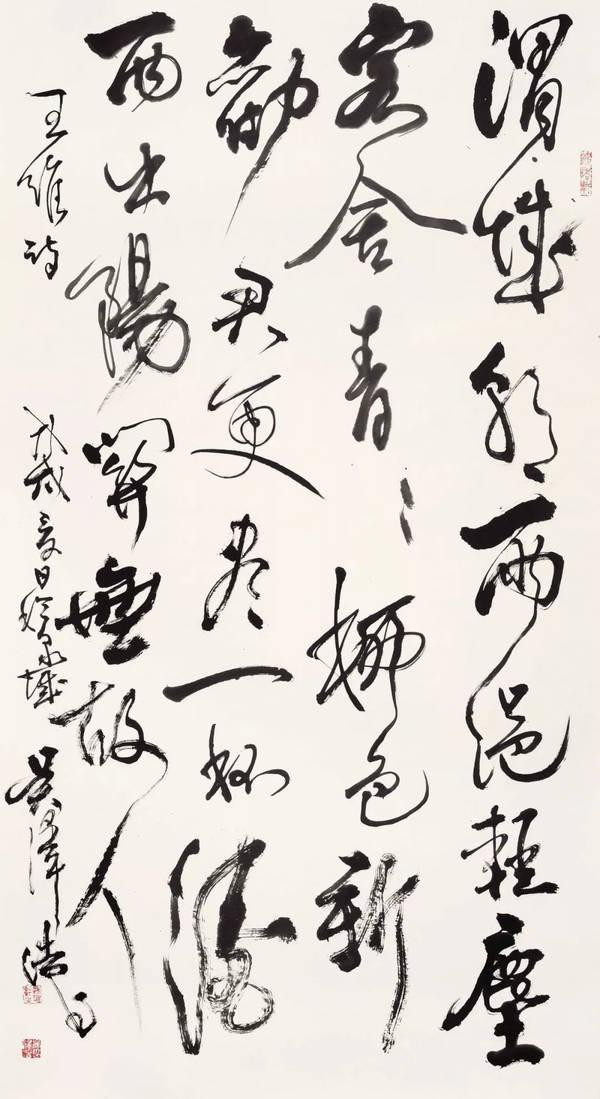 渭城朝雨浥輕塵
客舍青〻柳色新
勸君更盡一杯酒
西出陽關無故人
王維詩 戊戌夏日於泉城 吳澤浩書